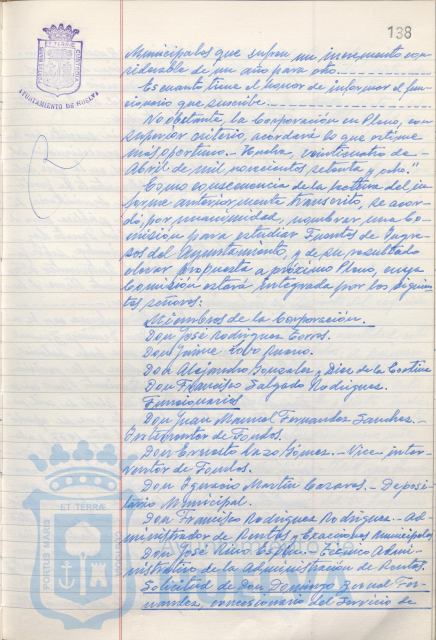 138
AYUNTAMIENTO DE HUELVA
Municipales que sufren un incremento con-
siderable de un año para otro.
Es cuanto tiene el honor de informar el fun-
cionario que suscribe.
No obstante, la Corporación en Pleno, con
superior criterio, acordará lo que estime
más oportuno.- Huelva, veinticuatro de
Abril de mil novecientos setenta y ocho."
Como consecuencia de la lectura del in-
forme anteriormente transcrito, se acor-
dó, por unanimidad, nombrar una Co-
misión para estudiar Fuentes de Ingre-
sos del Ayuntamiento, y de su resultado
elevar propuesta a próximo Pleno, cuya
Comisión estará integrada por los siguien-
tes señores:
Miembros de la Corporación.
Don José Rodríguez
Don Jaime
Don Alejandro González y Díaz de la Cortina
Don Francisco Salgado Rodríguez.
Funcionarios
Don Juan Manuel Fernández Sánchez.-
Interventor de Fondos.
Don Ernesto Lazo Gómez.- Vice-inter-
ventor de Fondos.
Don Ignacio Martín - Deposi-
tario Municipal.
Don Francisco Rodríguez Rodríguez.- Ad-
ministrador de Rentas y Exacciones Municipales
Don José - Técnico Admi-
nistrativo de la Administración de Rentas.
Solicitud de Don Domingo Bernal Fer-
nández, concesionario del Servicio de
ET TERRAE
PORTUS MARIS